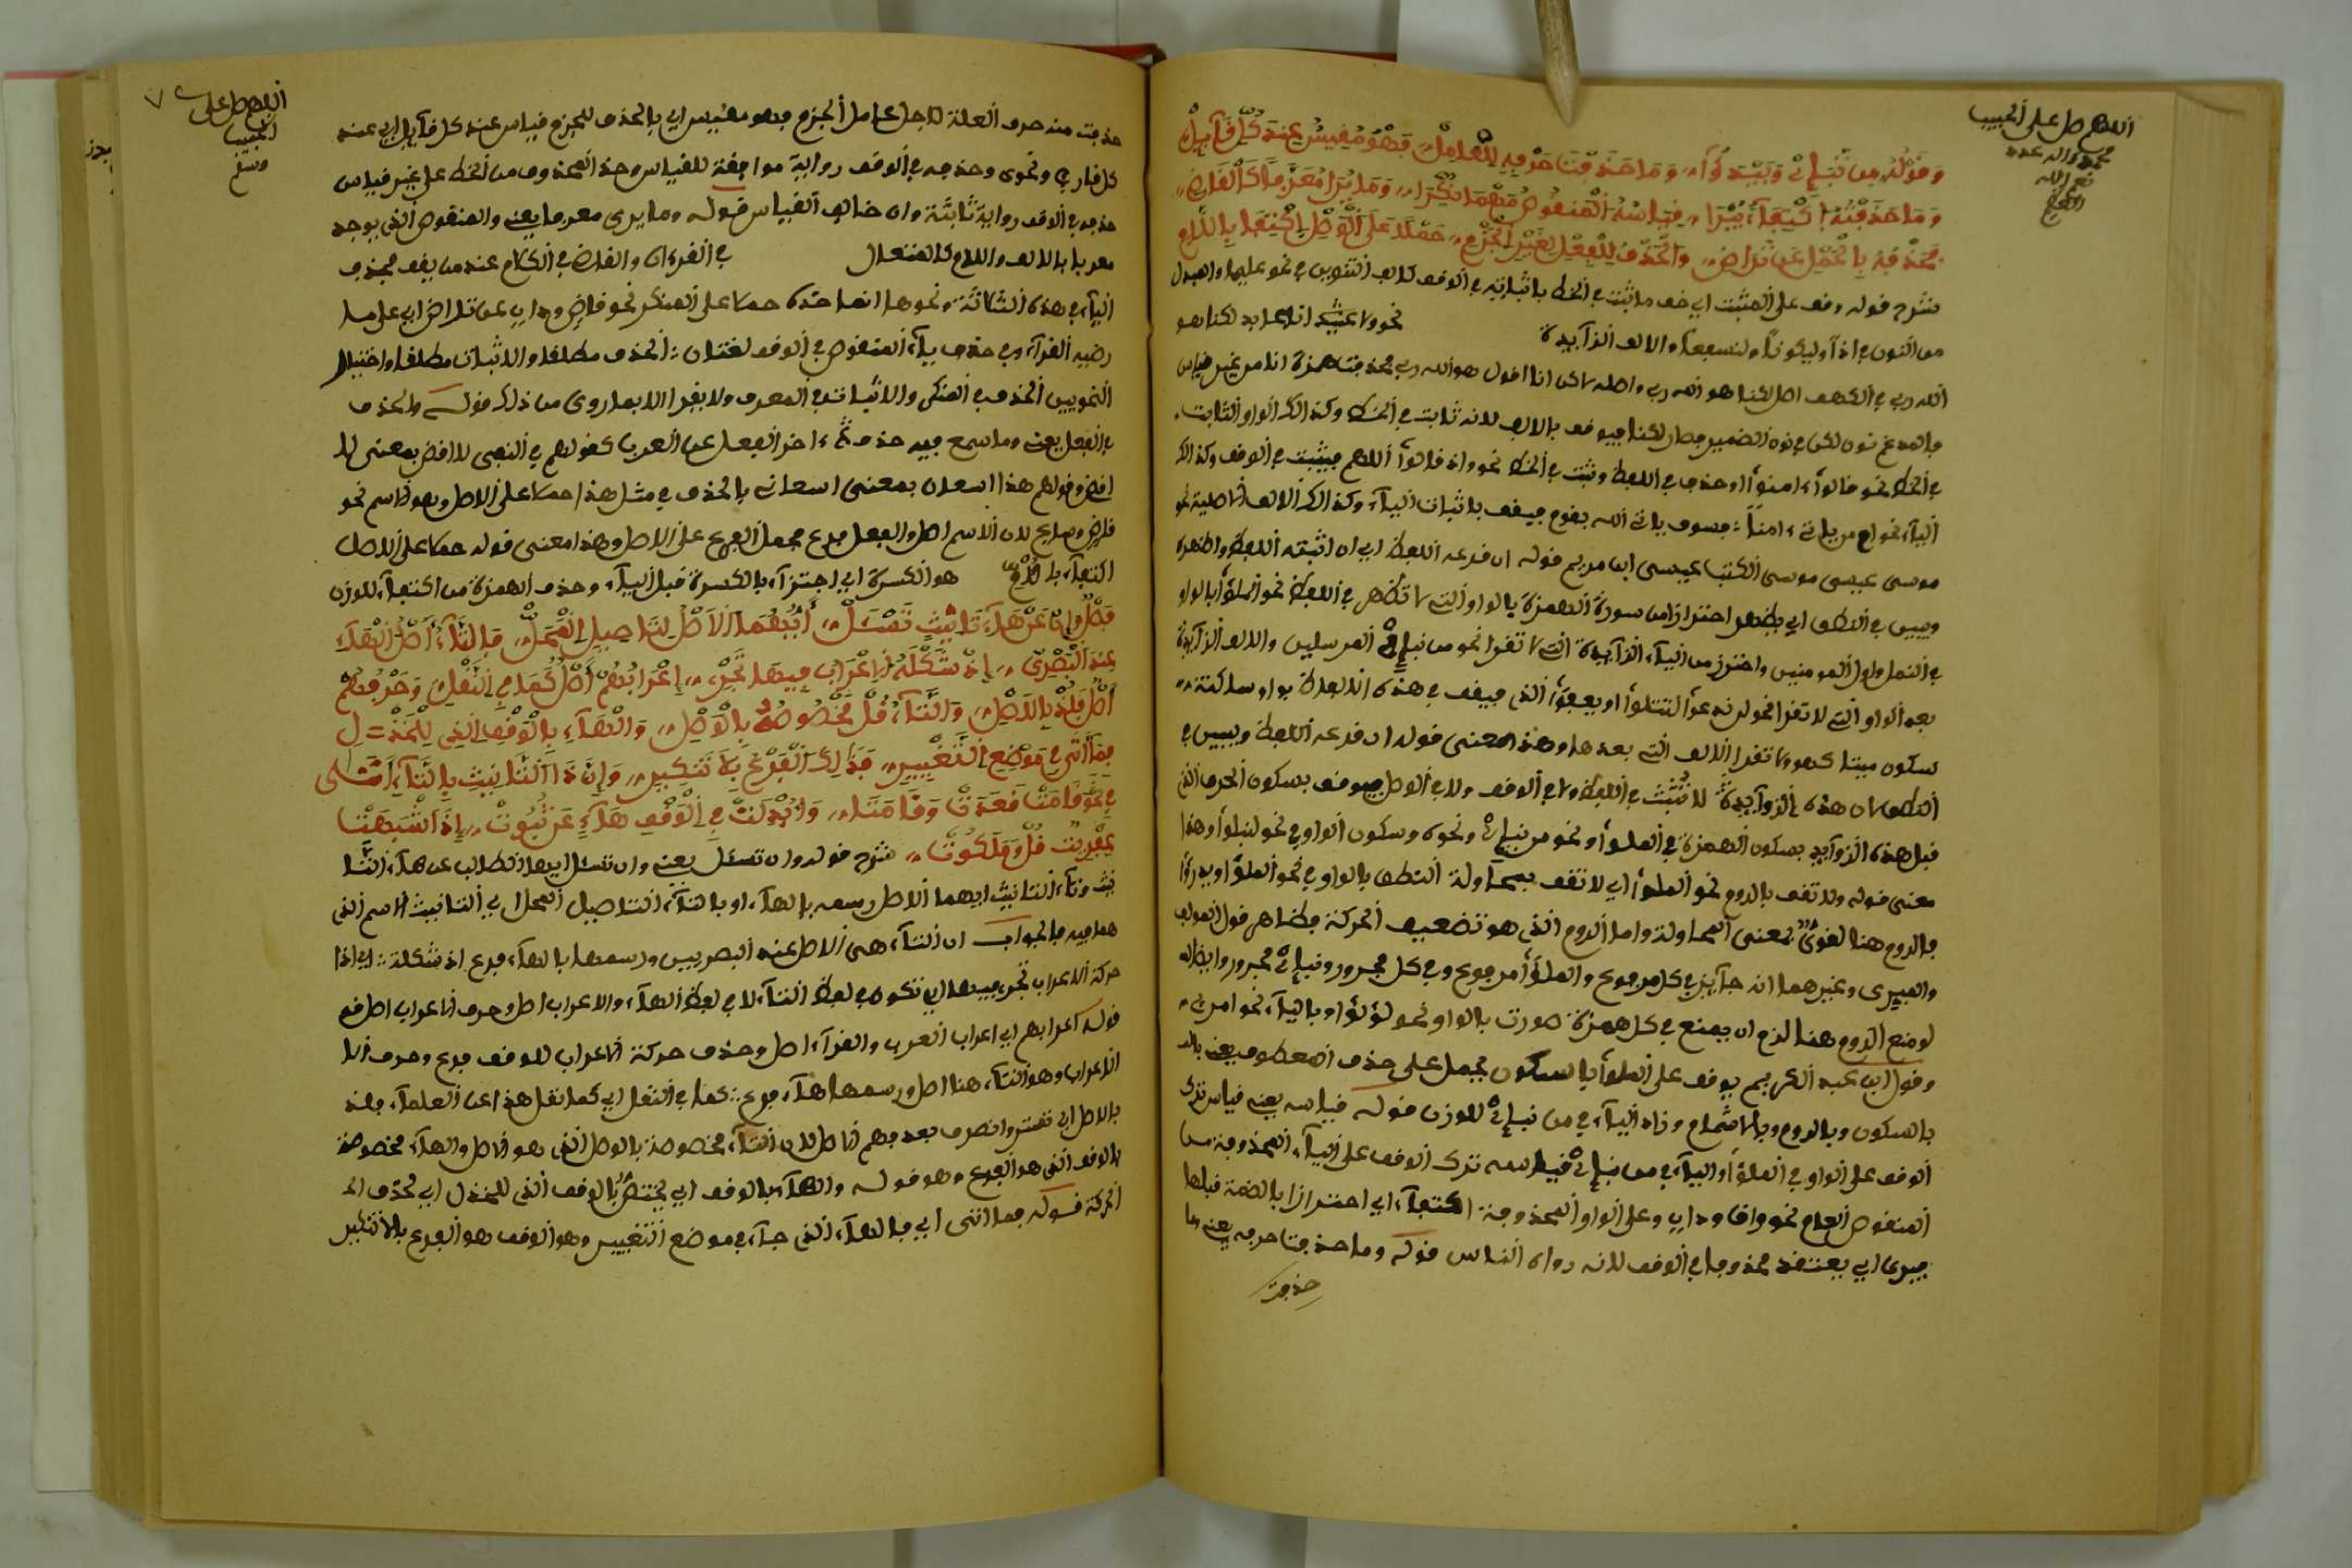 اللهم صل على الحبيب
محمد وآله عدد
نعم الله
وقوله من نبإى ويبدؤا وما حذفت حرفه للعامل فهو مقيس عند كل قايل
وما حذفته اكتفاء يرا قياسه المنقوص مهما نكرا وما يرا معرفا كالقاض
فحذفه بالحمل عن تراض والحذف للفعل لغير الجزم حملا على الوصل اكتفا باللام
شرح قوله وقف على المثبت اي قف ما ثبت في الخط باثباته في الوقف كالف التنوين في نحو عليما والمبدل
من النون في اذا وليكونا ولنسفعا والالف الزايدة نحو ولا انا عابد لكنا هو
الله ربي في الكهف اصل لكنا هو الله ربي واصله لاكن انا اقول هو الله ربي فحذفت همزة انا من غير قياس
فالمدغم نون لكن في نون الضمير فصار لكنا فيوقف بالالف لانه ثابت في الخط وكذالك الواو الثابت
في الخط نحو قالوا ءامنوا او حذف في اللفظ وثبت في الخط نحو واذ قالوا اللهم فيثبت في الوقف وكذالك
الياء نحو ام من ياتي ءامنا فسوف ياتي الله بقوم فيقف باثبات الياء وكذالك الالف الاصلية نحو
موسى عيسى موسى الكتب عيسى ابن مريم قوله ان قدعه اللفظ اي ان اثبته اللفظ واظهره
ويبين في النطق اي يظهر احترازا من سورة الهمزة بالواو التي لا تظهر في اللفظ نحو الملؤا بالواو
في النمل واول المومنين واحترز من الياء الزايدة التي لا تقرا نحو من نبإى المرسلين والالف الزايدة
بعد الواو التي لا تقرا نحو لن ندعوا لتتلوا او يعفوا الذي فيقف في هذه الالفاظ بواو ساكنة
سكون ميتا كهو ولا تقرا الالف التي بعدها وهذا معنى قوله ان قدعه اللفظ ويبين في
النطق لان هذه الزوايد لا تثبت في اللفظ لا في الوقف ولا في الوصل فيوقف بسكون الحرف الذي
قبل هذه الزوايد بسكون الهمزة في الملؤا ونحو من نبإى ونحوه وسكون الواو في نحو لنبلوا وهذا
معنى قوله ولا تقف بالروم نحو الملؤا اي لا تقف بمحاولة النطق بالواو في نحو الملؤا ويدرؤا
فالروم هنا لغوي بمعنى المحاولة واما الروم الذي هو تضعيف الحركة فظاهر قول المولف
والقيسي وغيرهما انه جايز في كل مرفوع والملؤا مرفوع وفي كل مجرور ونبإى مجرور وايضا
لو منع الروم هنا لزم ان يمنع في كل همزة صورت بالواو نحو لؤلؤا وبالياء نحو امرئ
وقول ابن عبد الكريم يوقف على الملؤا بالسكون يحمل على حذف المعطوف يعني
بالسكون وبالروم وبالاشمام وزاد الياء في من نبإى للوزن قوله قياسه يعني قياس ترك
الوقف على الواو في الملؤا والياء في من نبإى قياسه ترك الوقف على الياء المحذوفة من
المنقوص العام نحو واق وداي وعلى الواو المحذوفة اكتفاء اي احترازا بالضمة قبلها
فيرى اي يعتقد محذوفا في الوقف لانه رواه الناس قوله وما حذفت حرفه يعني ما
حذفت
اللهم صل على
الحبيب
وسلم
٧
حذفت منه حرف العلة لاجل عامل الجزم فهو مقيس اي بالحذف للجزم قياس عند كل قايل اي عند
كل قاري ونحوي وحذفه في الوقف رواية موافقة للقياس وحذ المحذوف من الخط على غير قياس
حذفه في الوقف رواية ثابتة وان خالف القياس قوله وما يرى معرفا يعني والمنقوص الذي يوجد
معرفا بالالف واللام كالمتعال في القرءان والقاض في الكلام عند من يقف بحذف
الياء في هذه الثلاثة ونحوها انما حذف حملا على المنكر نحو قاض وداب عن تراض اي على ما
رضيه القراء وفي حذف ياء المنقوص في الوقف لغتان الحذف مطلقا والاثبات مطلقا واختيار
النحويين الحذف في المنكر والاثبات في المعرف ولا يقرا الا بما روي من ذلك قوله والحذف
في الفعل يعني وما سمع فيه حذف ياء اخر الفعل عن العرب كقولهم في النهي لا اقض بمعنى لا
اقضي وقولهم هذا اسعان بمعنى اسعاني بالحذف في مثل هذا حملا على الاصل وهو الاسم نحو
قاض وصلح لان الاسم اصل والفعل فرع فحمل الفرع على الاصل وهذا معنى قوله حملا على الاصل
اكتفاء باللام هو الكسرة اي اجتزاء بالكسرة قبل الياء وحذف الهمزة من اكتفاء للوزن
فصل وان عن هاء تانيث تسل ايهما الاصل لتاصيل العمل فالتاء اصل الهاء
عند البصري اذ شكله الاعراب فيها تجري اعرابهم اصل كما في النقل وحرفهم
اصل فلذ بالاصل والتاء قل مخصوصة بالوصل والهاء بالوقف الذي للخذل
فما اتى في موضع التغيير فذالك الفرع بلا نكير وان ذا التانيث بالتاء اتى
في نحو قامت قعدت وقامتا وابدلت في الوقف هاء عن ثبوت اذ اشبهت
عفريت قل وملكوت شرح قوله وان تسئل يعني وان تسئل ايها الطالب عن هاء التا
نيث وتاء التانيث ايهما الاصل رسمه بالهاء او بالتاء التاصيل المحل اي التانيث الاسم الذي
هما فيه فالجواب ان التاء هي الاصل عند البصريين ورسمها بالهاء فرع اذ شكلة اي اذا
حركة الاعراب تجري فيها اي تكون في لفظ التاء لا في لفظ الهاء والاعراب اصل وحرف الاعراب اصل قف
قوله اعرابهم اي اعراب العرب والقراء اصل وحذف حركة الاعراب للوقف فرع وحرف الا
الاعراب وهو التاء هنا اصل ورسمها هاء فرع كما في النقل اي كما نقل هذا عن العلماء فلذ
بالاصل اي تستر وانصرف بعد فهم الاصل لان التاء مخصوصة بالوصل الذي هو الاصل والهاء مخصوصة
بالوقف الذي هو الفرع وهو قوله والهاء بالوقف اي يختص بالوقف الذي للخذل اي لحذف ال
الحركة قوله فما اتى اي فالهاء الذي جاء في موضع التغيير وهو الوقف هو الفرع بلا نكير